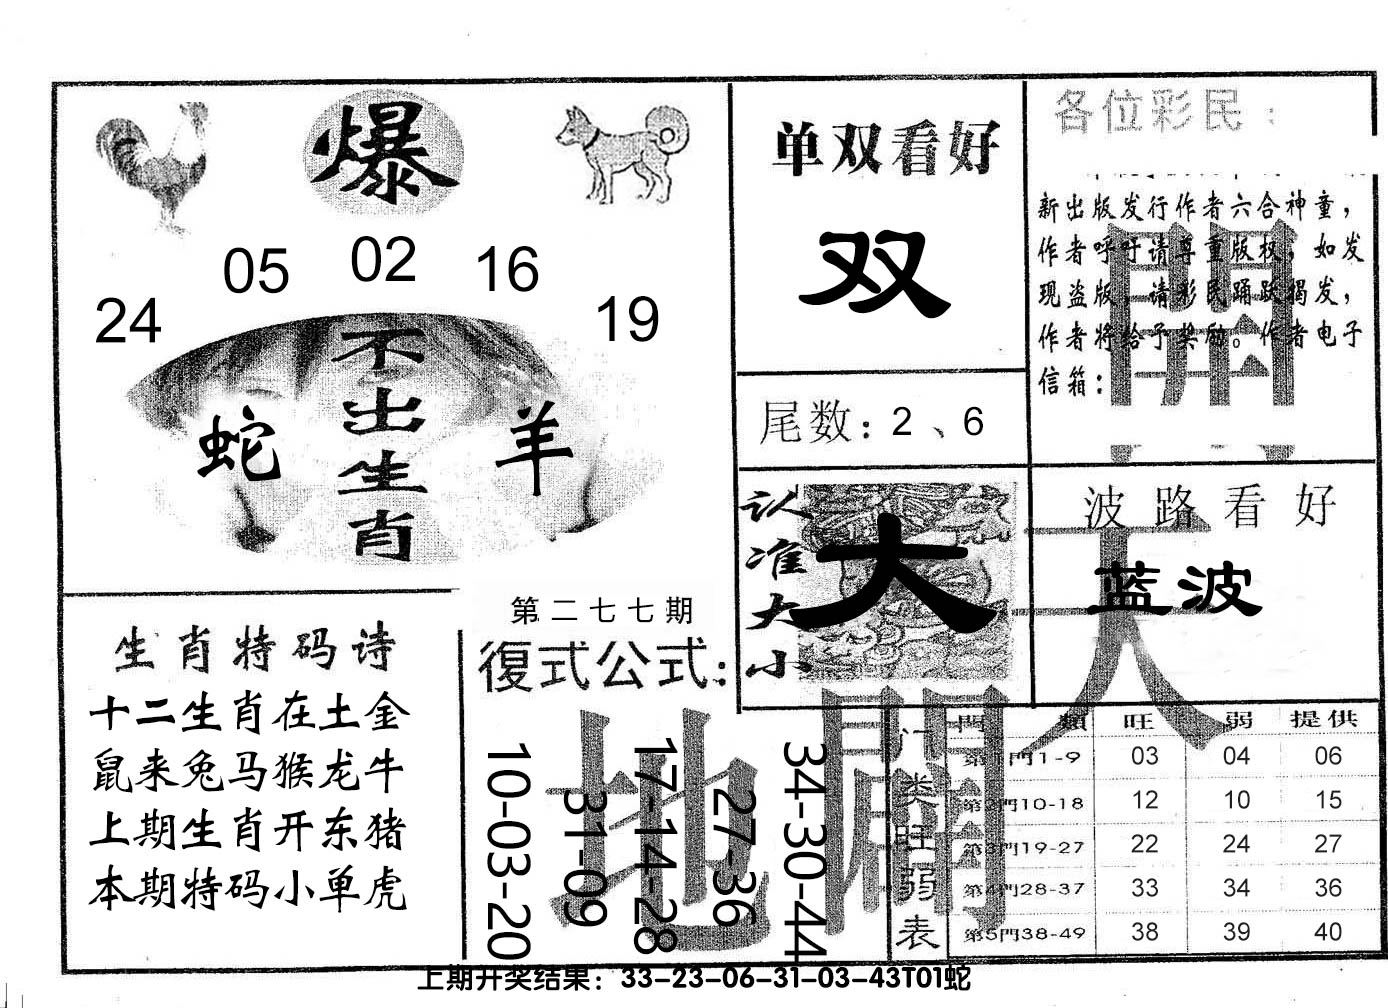 爆
24 05 02 16 19
不出生肖
蛇 羊
单双看好
双
尾数：2、6
认准大小
大
各位彩民：
新出版发行作者六合神童，
作者呼吁请尊重版权，如发
现盗版，请彩民踊跃揭发，
作者将给予奖励。作者电子
信箱：
波路看好
蓝波
天
開
地
闢
生肖特码诗
十二生肖在土金
鼠来兔马猴龙牛
上期生肖开东猪
本期特码小单虎
第二七七期
復式公式：
10-03-20
31-09
17-14-28
27-36
34-30-44
门类旺弱表
門類 旺 弱 提供
第1門1-9 03 04 06
第2門10-18 12 10 15
第3門19-27 22 24 27
第4門28-37 33 34 36
第5門38-49 38 39 40
上期开奖结果：33-23-06-31-03-43T01蛇